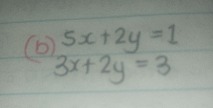 (b) 5x+2y=1
3x+2y=3